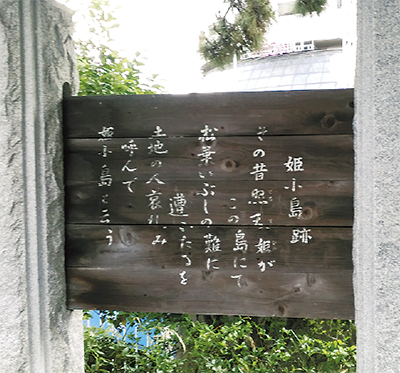 姫小島跡
その昔照天姫が
この島にて
松葉いぶしの難に
遭こたるを
土地の人哀れみ
呼んで
姫小島と云う